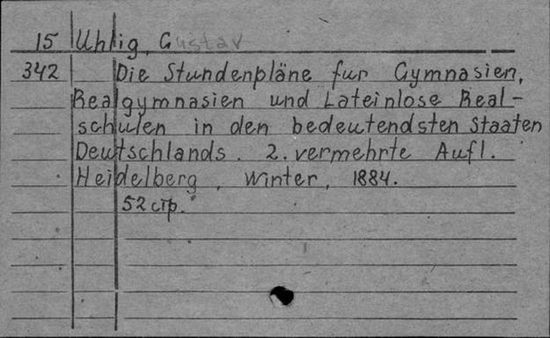 15 Uhlig, Gustav
342 Die Stundenpläne fur Gymnasien,
Realgymnasien und Lateinlose Real-
schulen in den bedeutendsten Staaten
Deutschlands. 2. vermehrte Aufl.
Heidelberg, Winter, 1884.
52 стр.